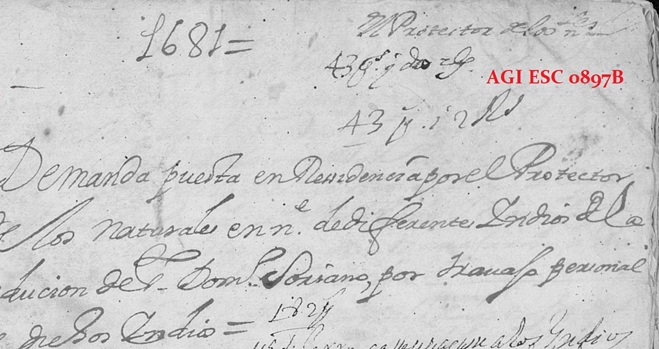 1681=
El Protector de los n.les
43 ps y dos rs
AGI ESC 0897B
43 p 2 Rs
Demanda puesta en Residencia por el Protector
de los naturales en n.e de diferentes Indios de la
reducion de Dom.o Soriano, por travajo personal
de dhos Indios =
a los Indios